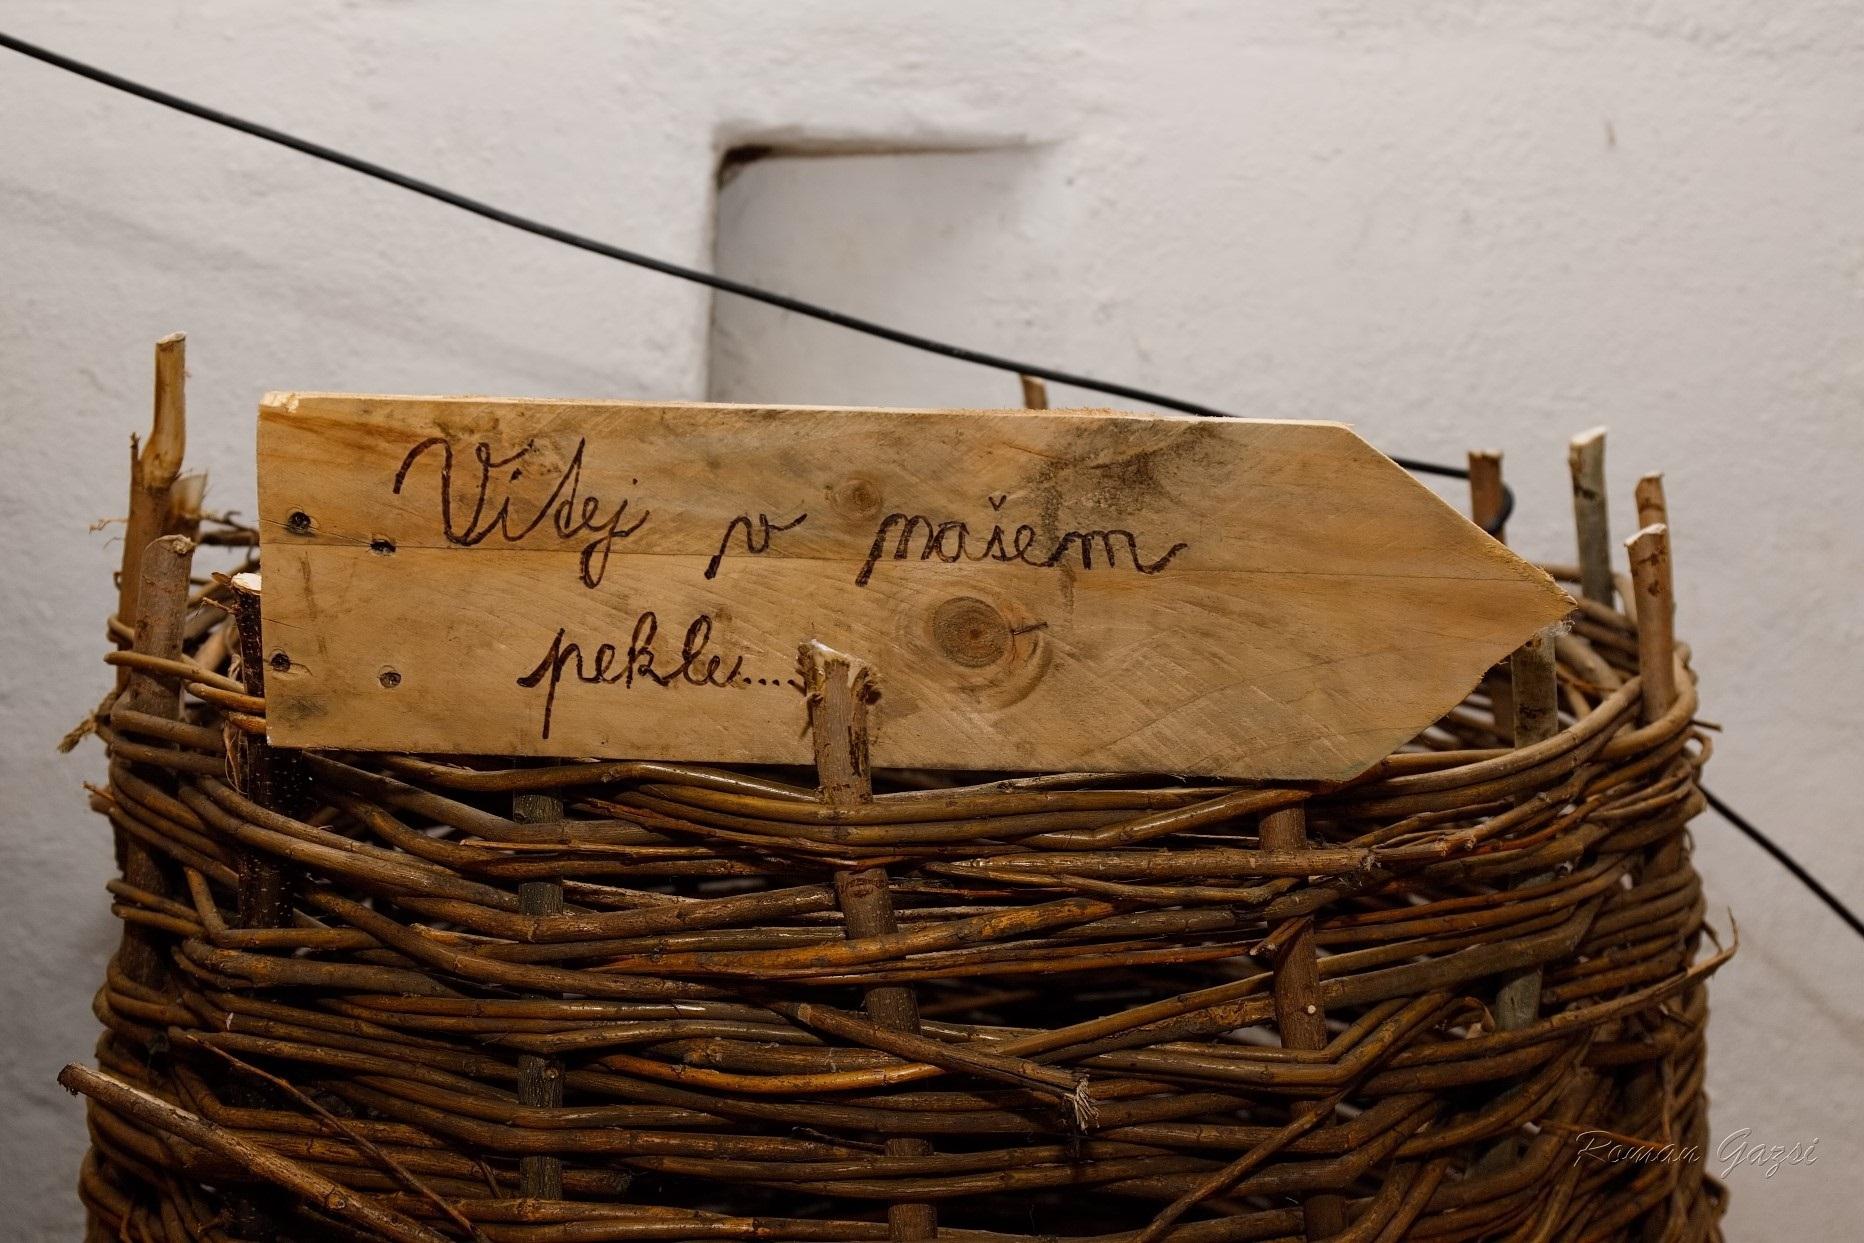 Vítej v našem
pekle....
Roman Gazsi